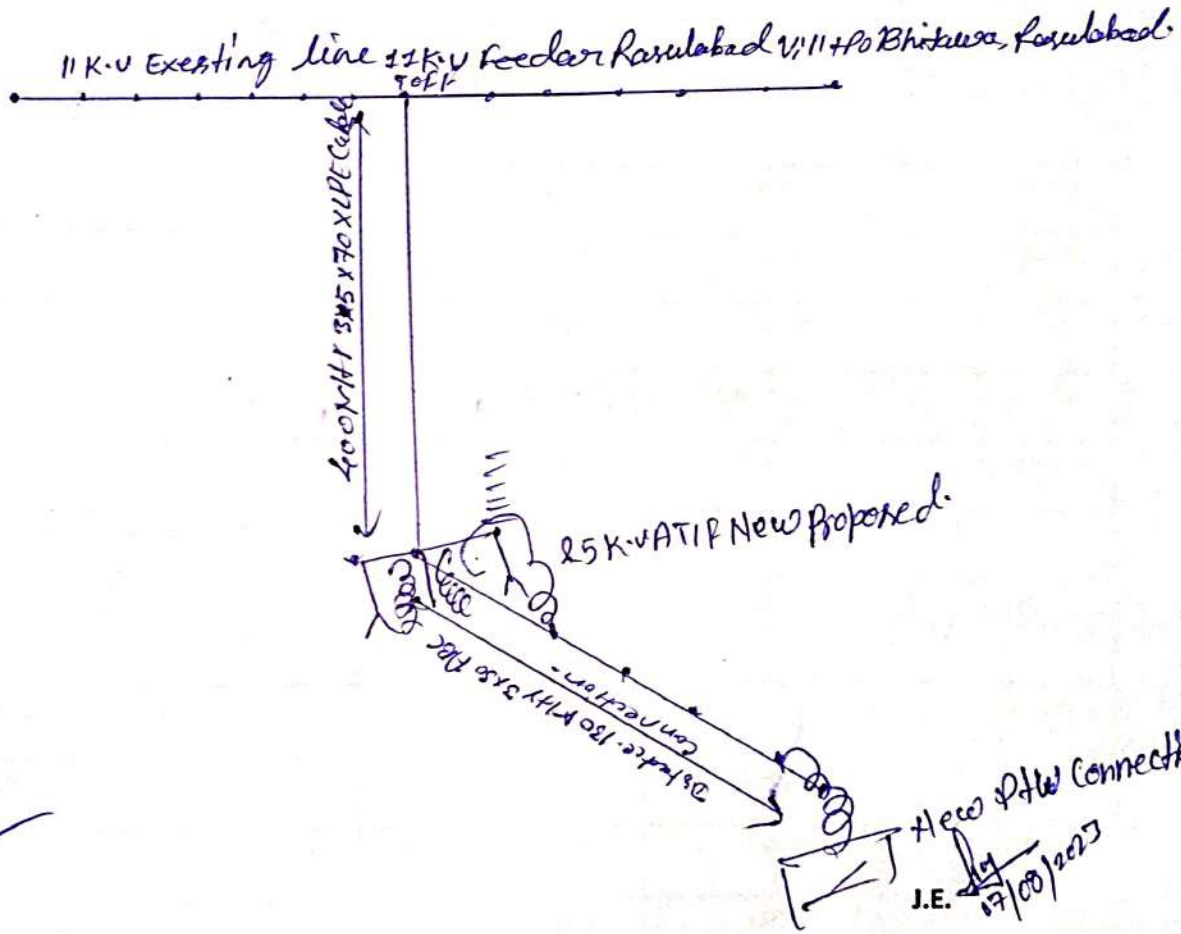 11 K.V Exesting line 11K.V Feedar Rasulabad Vill+Po Bhikawa, Rasulabad.
Toff
400 MHY 3x5x70 XLPE Cable
25 K.V A T/R New Proposed.
Distance. 130 MHY 3x50 ABC
Connection-
New PtW Connecti
J.E.
07/08/2023